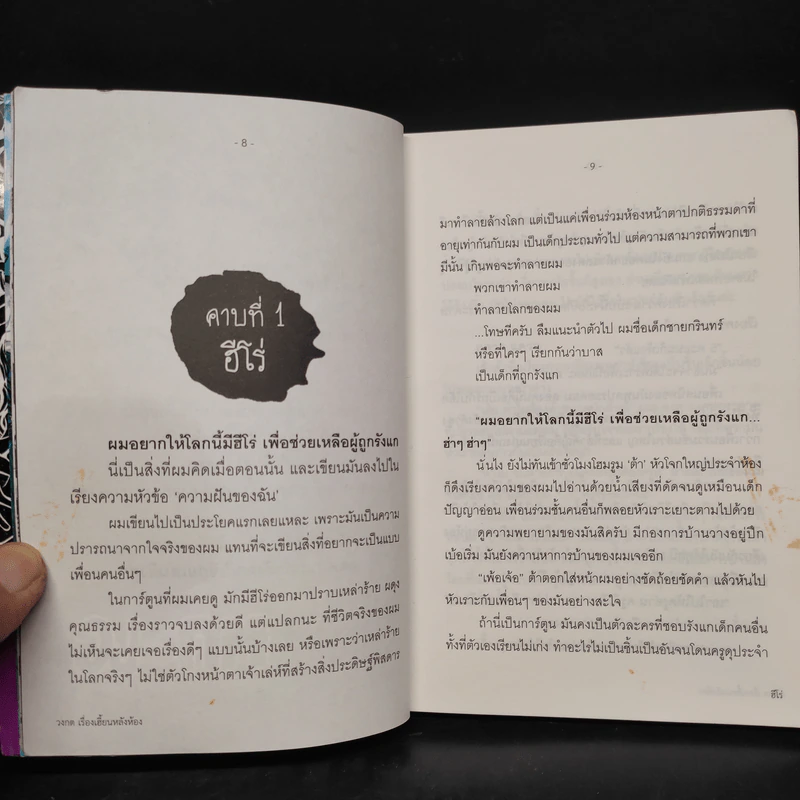 - 8 -
คาบที่ 1
ฮีโร่
ผมอยากให้โลกนี้มีฮีโร่ เพื่อช่วยเหลือผู้ถูกรังแก
นี่เป็นสิ่งที่ผมคิดเมื่อตอนนั้น และเขียนมันลงไปใน
เรียงความหัวข้อ ‘ความฝันของฉัน’
ผมเขียนไปเป็นประโยคแรกเลยแหละ เพราะมันเป็นความ
ปรารถนาจากใจจริงของผม แทนที่จะเขียนสิ่งที่อยากจะเป็นแบบ
เพื่อนคนอื่นๆ
ในการ์ตูนที่ผมเคยดู มักมีฮีโร่ออกมาปราบเหล่าร้าย ผดุง
คุณธรรม เรื่องราวจบลงด้วยดี แต่แปลกนะ ที่ชีวิตจริงของผม
ไม่เห็นจะเคยเจอเรื่องดีๆ แบบนั้นบ้างเลย หรือเพราะว่าเหล่าร้าย
ในโลกจริงๆ ไม่ใช่ตัวโกงหน้าตาเจ้าเล่ห์ที่สร้างสิ่งประดิษฐ์พิสดาร
วงกต เรื่องเฮี้ยนหลังห้อง
- 9 -
มาทำลายล้างโลก แต่เป็นแค่เพื่อนร่วมห้องหน้าตาปกติธรรมดาที่
อายุเท่ากันกับผม เป็นเด็กประถมทั่วไป แต่ความสามารถที่พวกเขา
มีนั้น เกินพอจะทำลายผม
พวกเขาทำลายผม
ทำลายโลกของผม
...โทษทีครับ ลืมแนะนำตัวไป ผมชื่อเด็กชายกรินทร์
หรือที่ใครๆ เรียกกันว่าบาส
เป็นเด็กที่ถูกรังแก
“ผมอยากให้โลกนี้มีฮีโร่ เพื่อช่วยเหลือผู้ถูกรังแก...
ฮ่าๆ ฮ่าๆ”
นั่นไง ยังไม่ทันเข้าชั่วโมงโฮมรูม ‘ต้า’ หัวโจกใหญ่ประจำห้อง
ก็ดึงเรียงความของผมไปอ่านด้วยน้ำเสียงที่ดัดจนดูเหมือนเด็ก
ปัญญาอ่อน เพื่อนร่วมชั้นคนอื่นก็พลอยหัวเราะเยาะตามไปด้วย
ดูความพยายามของมันสิครับ มีกองการบ้านวางอยู่ปึก
เบ้อเริ่ม มันยังควานหาการบ้านของผมเจออีก
“เพ้อเจ้อ” ต้าตอกใส่หน้าผมอย่างชัดถ้อยชัดคำ แล้วหันไป
หัวเราะกับเพื่อนๆ ของมันอย่างสะใจ
ถ้านี่เป็นการ์ตูน มันคงเป็นตัวละครที่ชอบรังแกเด็กคนอื่น
ทั้งที่ตัวเองเรียนไม่เก่ง ทำอะไรไม่เป็นชิ้นเป็นอันจนโดนครูดุประจำ
ฮีโร่